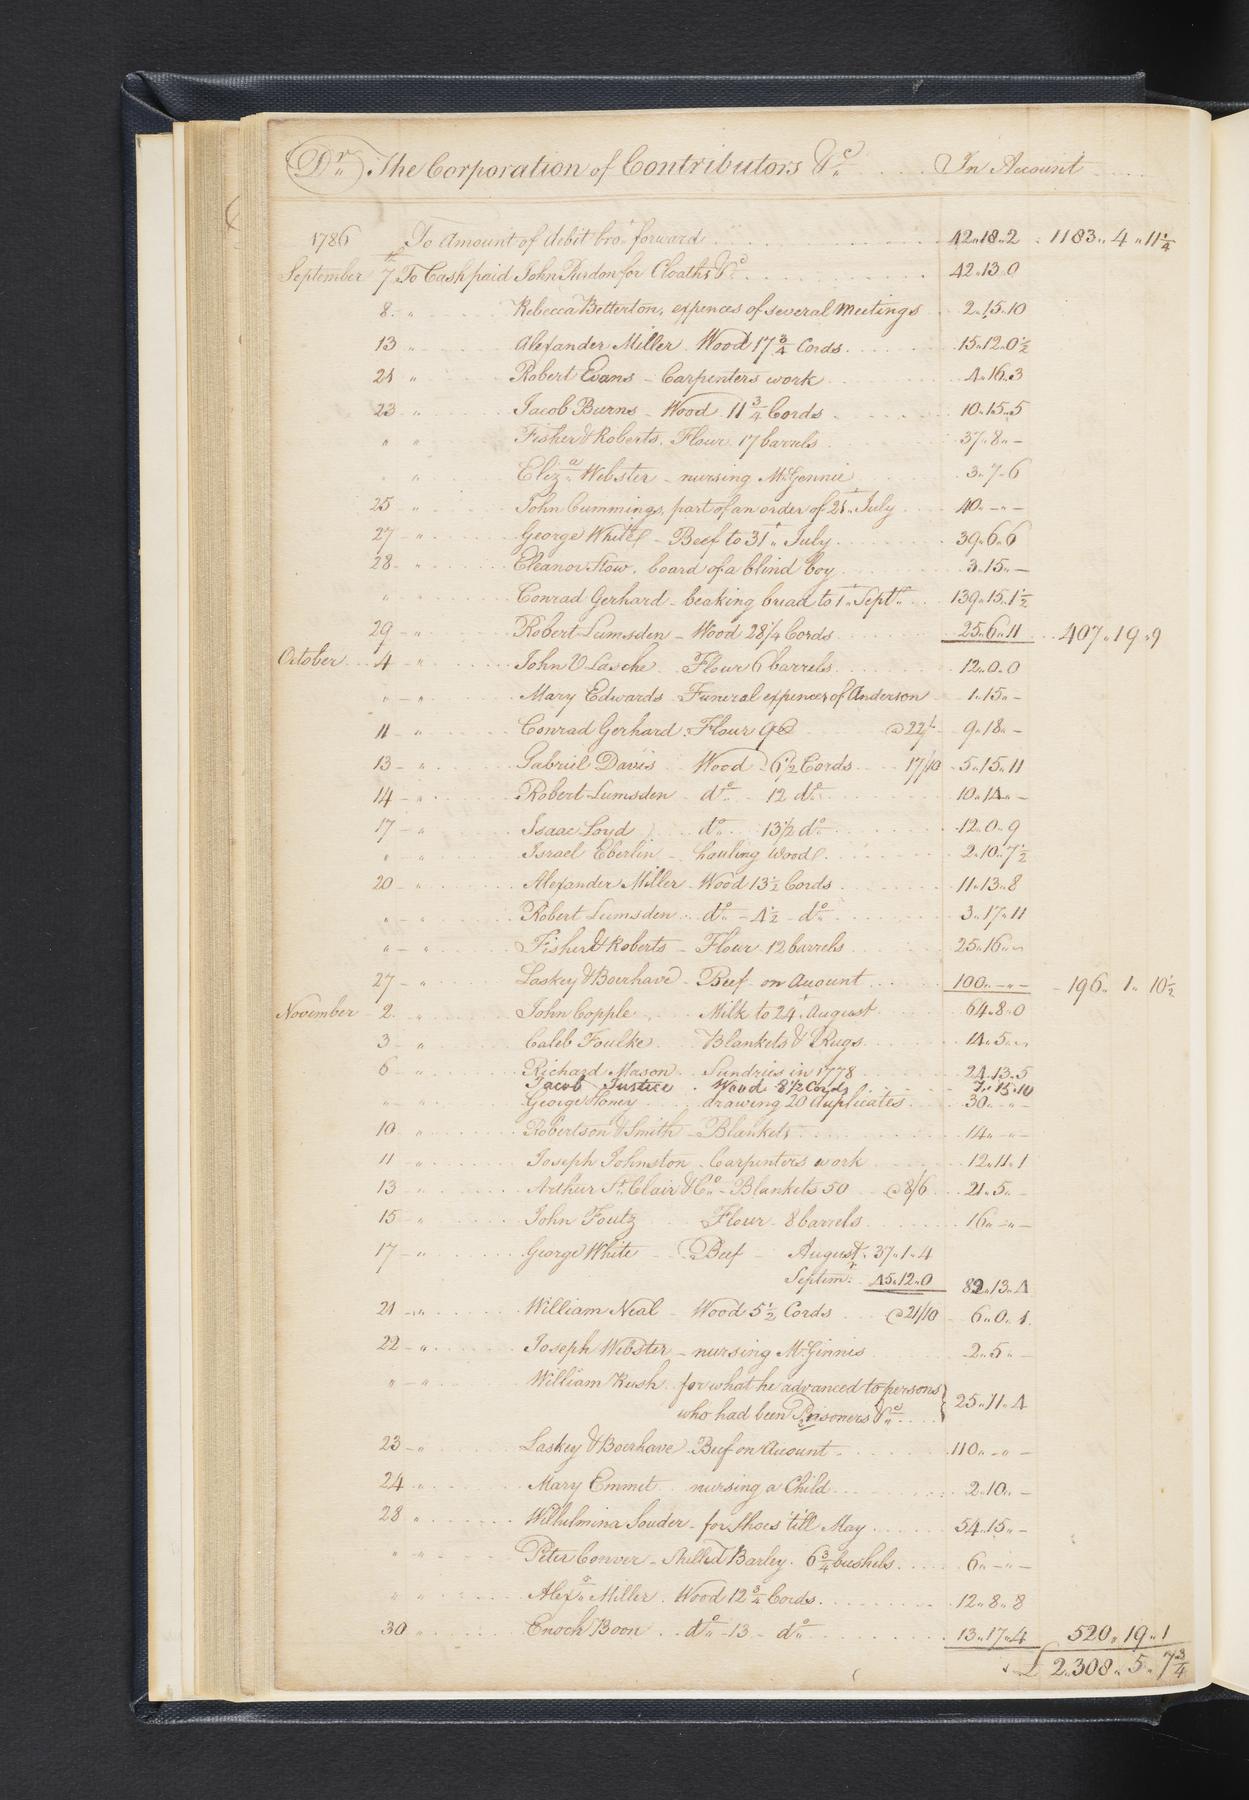 Dr. The Corporation of Contributors &c. In Account
1786 To Amount of debit bro. forward 42.18.2 1183.4.11 1/4
September 7th To Cash paid John Purdon for Cloaths &c. 42.13.0
8. " Rebecca Betterton, expences of several Meetings 2.15.10
13 " Alexander Miller Wood 17 3/4 Cords. 15.12.0 1/2
21 " Robert Evans - Carpenters work 4.16.3
23 " Jacob Burns - Wood 11 3/4 Cords 10.15.5
" " Fisher & Roberts. Flour 17 barrels 37.8.-
" " Eliza. Webster - nursing McGennis 3.7.6
25 " John Cummings, part of an order of 21st July 40.-.-
27 " George White - Beef to 31st July 39.6.6
28 " Eleanor Stow, board of a blind boy 3.15.-
" " Conrad Gerhard - beaking bread to 1st Septr. 139.15.1 1/2
29 " Robert Lumsden - Wood 28 1/4 Cords 25.6.11 407.19.9
October 4 " John V Lasche Flour 6 barrels 12.0.0
" " Mary Edwards Funeral expences of Anderson 1.15.-
11 " Conrad Gerhard Flour 9 @ 22/ 9.18.-
13 " Gabriel Davis Wood 6 1/2 Cords 17/10 5.15.11
14 " Robert Lumsden do. 12 do. 10.14.-
17 " Isaac Loyd do. 13 1/2 do. 12.0.9
" " Israel Eberlin - hauling Wood 2.10.7 1/2
20 " Alexander Miller Wood 13 1/2 Cords 11.13.8
" " Robert Lumsden do. - 4 1/2 - do. 3.17.11
" " Fisher & Roberts - Flour 12 barrels 25.16.-
27 " Laskey & Boerhave - Beef on Account 100.-.- 196.1.10 1/2
November 2. " John Copple Milk to 24t. August 64.8.0
3 " Caleb Foulke Blankets & Rugs 14.5.-
6 " Richard Mason Sundries in 1778 24.13.5
Jacob Justice Wood 8 1/2 Cords 7.15.10
" " George Honey drawing 20 duplicates 30.-.-
10 " Robertson & Smith - Blankets 14.-.-
11 " Joseph Johnston Carpenters work 12.11.1
13 " Arthur St. Clair & Co. - Blankets 50 @ 8/6 21.5.-
15 " John Foutz Flour - 8 barrels 16.-.-
17 " George White - Beef - August 37.1.4
Septemr. 45.12.0 82.13.4
21 " William Neal - Wood 5 1/2 Cords @ 21/10 6.0.1
22 " Joseph Webster - nursing McGinnis 2.5.-
" " William Rush for what he advanced to persons
who had been Prisoners &c. 25.11.4
23 " Laskey & Boerhave Beef on Account 110.-.-
24 " Mary Emmet nursing a Child 2.10.-
28 " Wilhelmina Souder - for Shoes till May 54.15.-
" " Peter Conver - Shelled Barley. 6 3/4 bushels 6.-.-
" " Alexr. Miller Wood 12 3/4 Cords. 12.8.8
30 " Enoch Boon do. - 13 - do. 13.17.4 520.19.1
£ 2.308.5.7 3/4